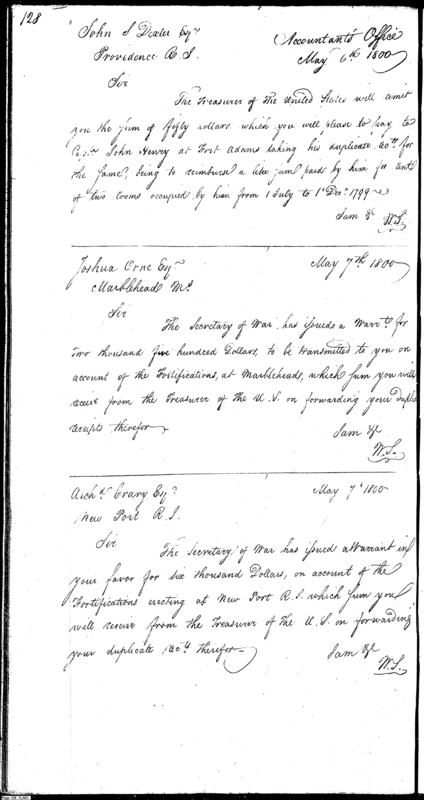 128
John S Dexter Esqr
Accountants Office
Providence R. I.
May 6th 1800
Sir
The Treasurer of the United States will remit
you the sum of fifty dollars which you will please to pay to
John Henry at Fort Adams taking his duplicate rects. for
the same, being to reimburse a like sum paid by him for rent
of two rooms occupied by him from 1 July to 1st Decr. 1799
I am &c
W.S.
Joshua Orne Esqr
May 7th 1800
Marblehead Ms
Sir
The Secretary of War has issued a Warrt. for
two thousand five hundred Dollars, to be transmitted to you on
account of the Fortifications, at Marblehead, which sum you will
receive from the Treasurer of the U. S. on forwarding your duplc
receipts therefor
I am &c
W.S.
Archd Crary Esqr
May 7th 1800
New Port R. I.
Sir
The Secretary of War has issued a Warrant in
your favor for six thousand Dollars, on account of the
Fortifications erecting at New Port R. I. which sum you
will receive from the Treasurer of the U. S. on forwarding
your duplicate rects therefor
I am &c
W.S.